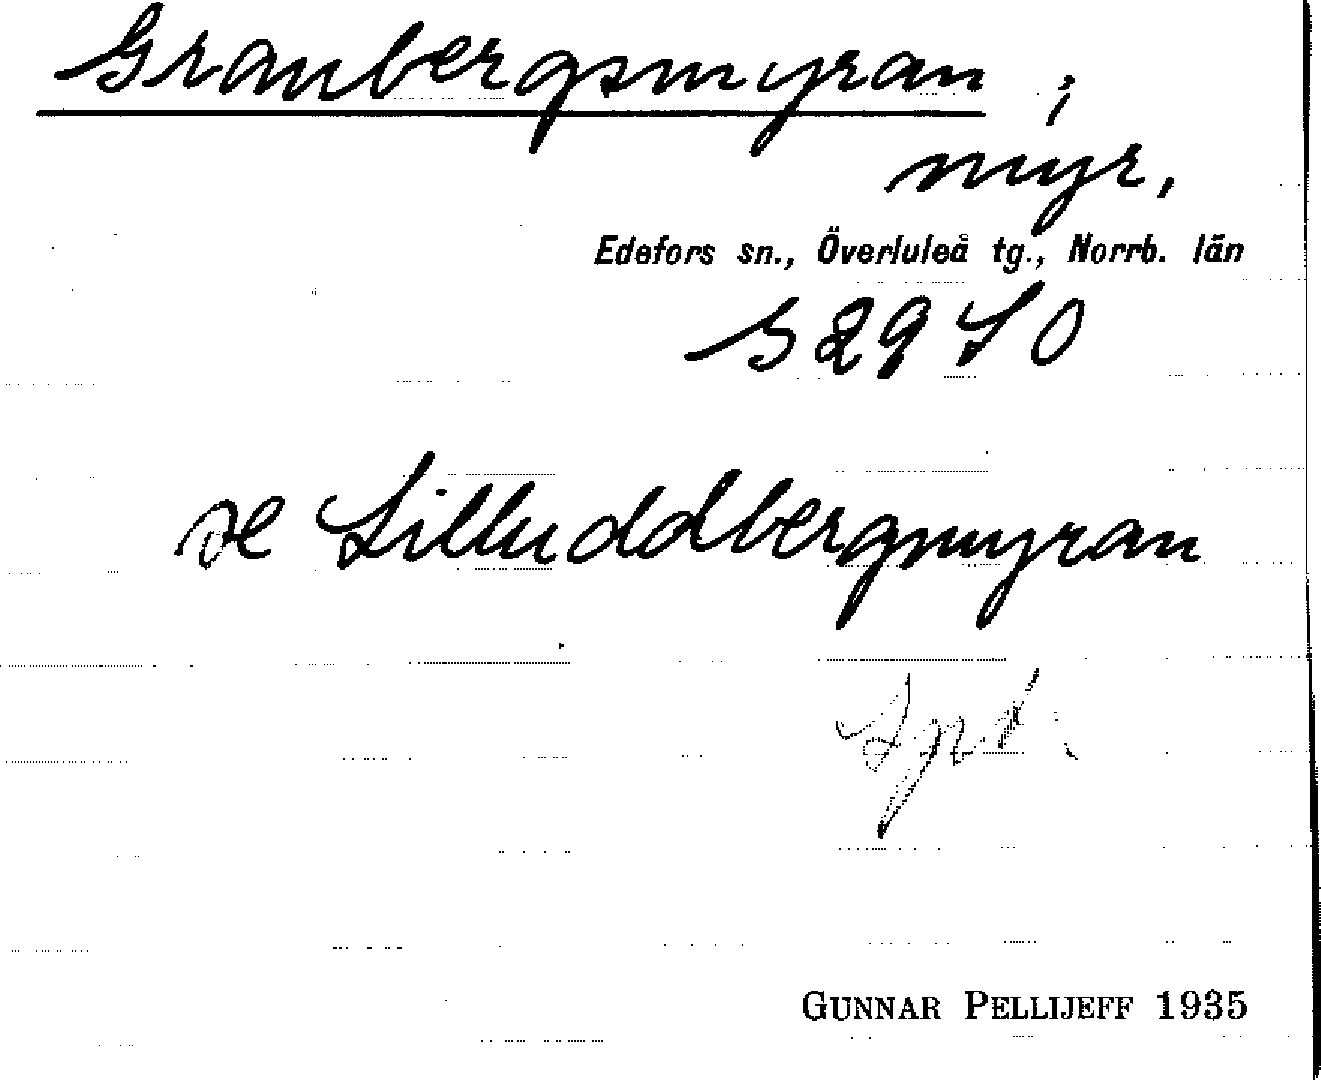 Granbergsmyran ;
myr,
Edefors sn., Överluleå tg., Norrb. län
S 29 S O
se Lilluddbergmyran
GUNNAR PELLIJEFF 1935